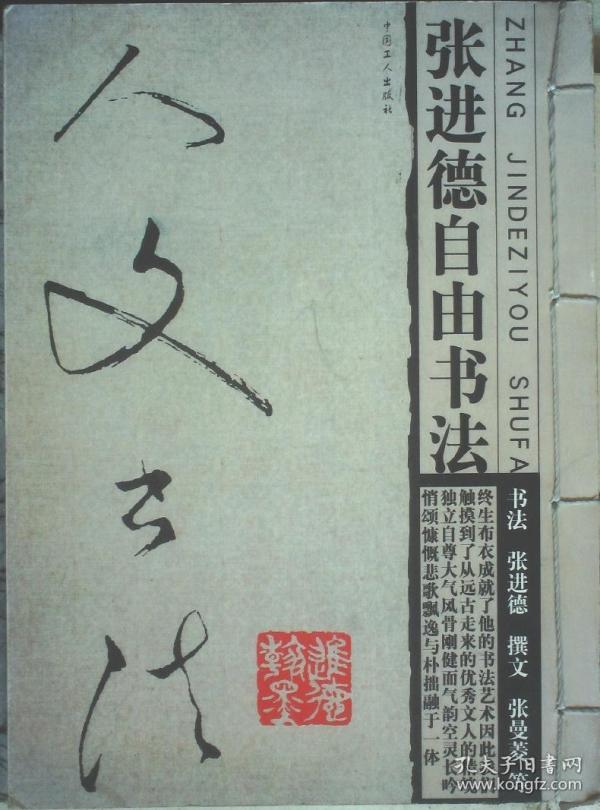 ZHANG JINDEZIYOU SHUFA
张进德自由书法
中国工人出版社
人文书法
进德翰墨
书法 张进德 撰文 张曼菱等
终生布衣成就了他的书法艺术因此
触摸到了从远古走来的优秀文人的
独立自尊大气风骨刚健而气韵空灵长吟
悄颂慷慨悲歌飘逸与朴拙融于一体
孔夫子旧书网
kongfz.com